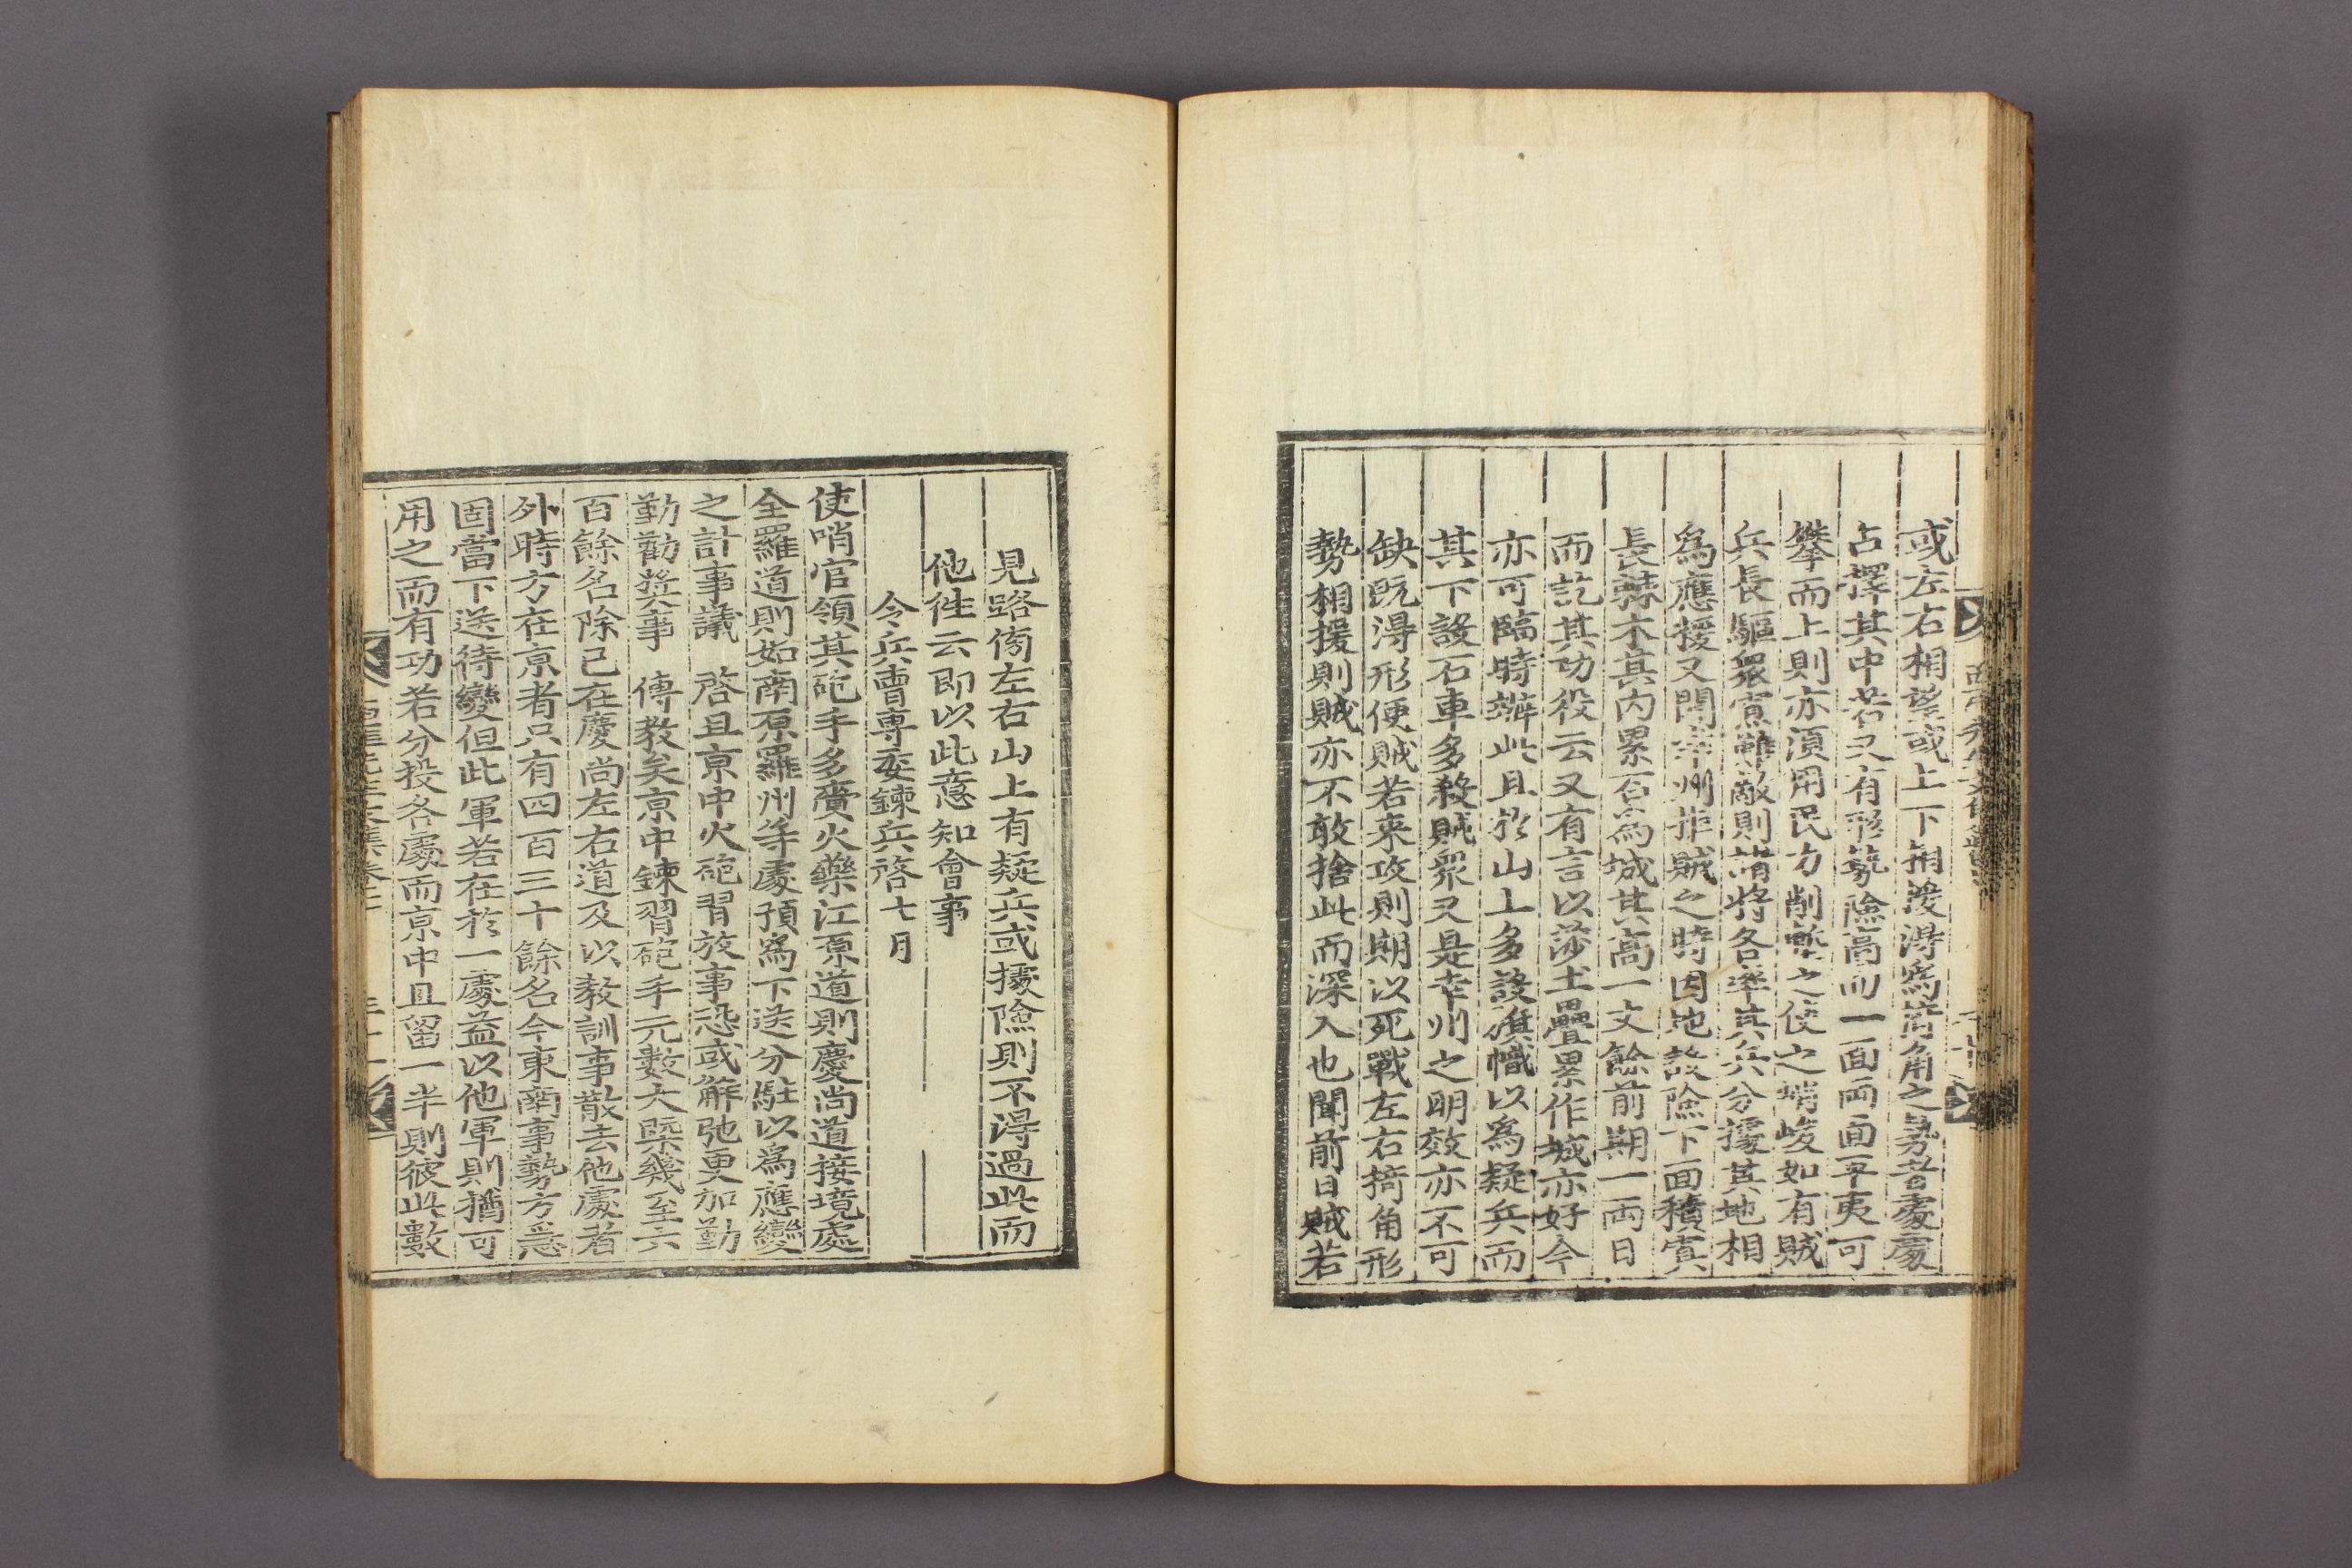 或左右相望或上下相援得爲掎角之勢者處處
占擇其中若又有形勢險高而一面兩面平夷可
攀而上則亦須用民力削塹之使之峭峻如有賊
兵長驅衆寡難敵則諸將各率其兵分據其地相
爲應援又聞幸州拒賊之時因地設險下面積實
長棘木其內累石爲城其高一丈餘前期一兩日
而訖其功役云又有言以莎土疊累作城亦好今
亦可臨時辦此且於山上多設旗幟以爲疑兵而
其下設石車多殺賊衆又是幸州之明效亦不可
缺旣得形便賊若來攻則期以死戰左右掎角形
勢相援則賊亦不敢捨此而深入也聞前日賊若
見路傍左右山上有疑兵或據險則不得過此而
他徃云即以此意知會事
令兵曹專委鍊兵啓 七月
使哨官領其砲手多賫火藥江原道則慶尚道接境處
全羅道則如南原羅州等處預爲下送分駐以爲應變
之計事議 啓且京中火砲習放事恐或解弛更加勤
勤勸奬事 傳敎矣京中鍊習砲手元數大槩幾至六
百餘名除已在慶尚左右道及以敎訓事散去他處者
外時方在京者只有四百三十餘名今東南事勢方急
固當下送待變但此軍若在於一處益以他軍則猶可
用之而有功若分投各處而京中且留一半則彼此數